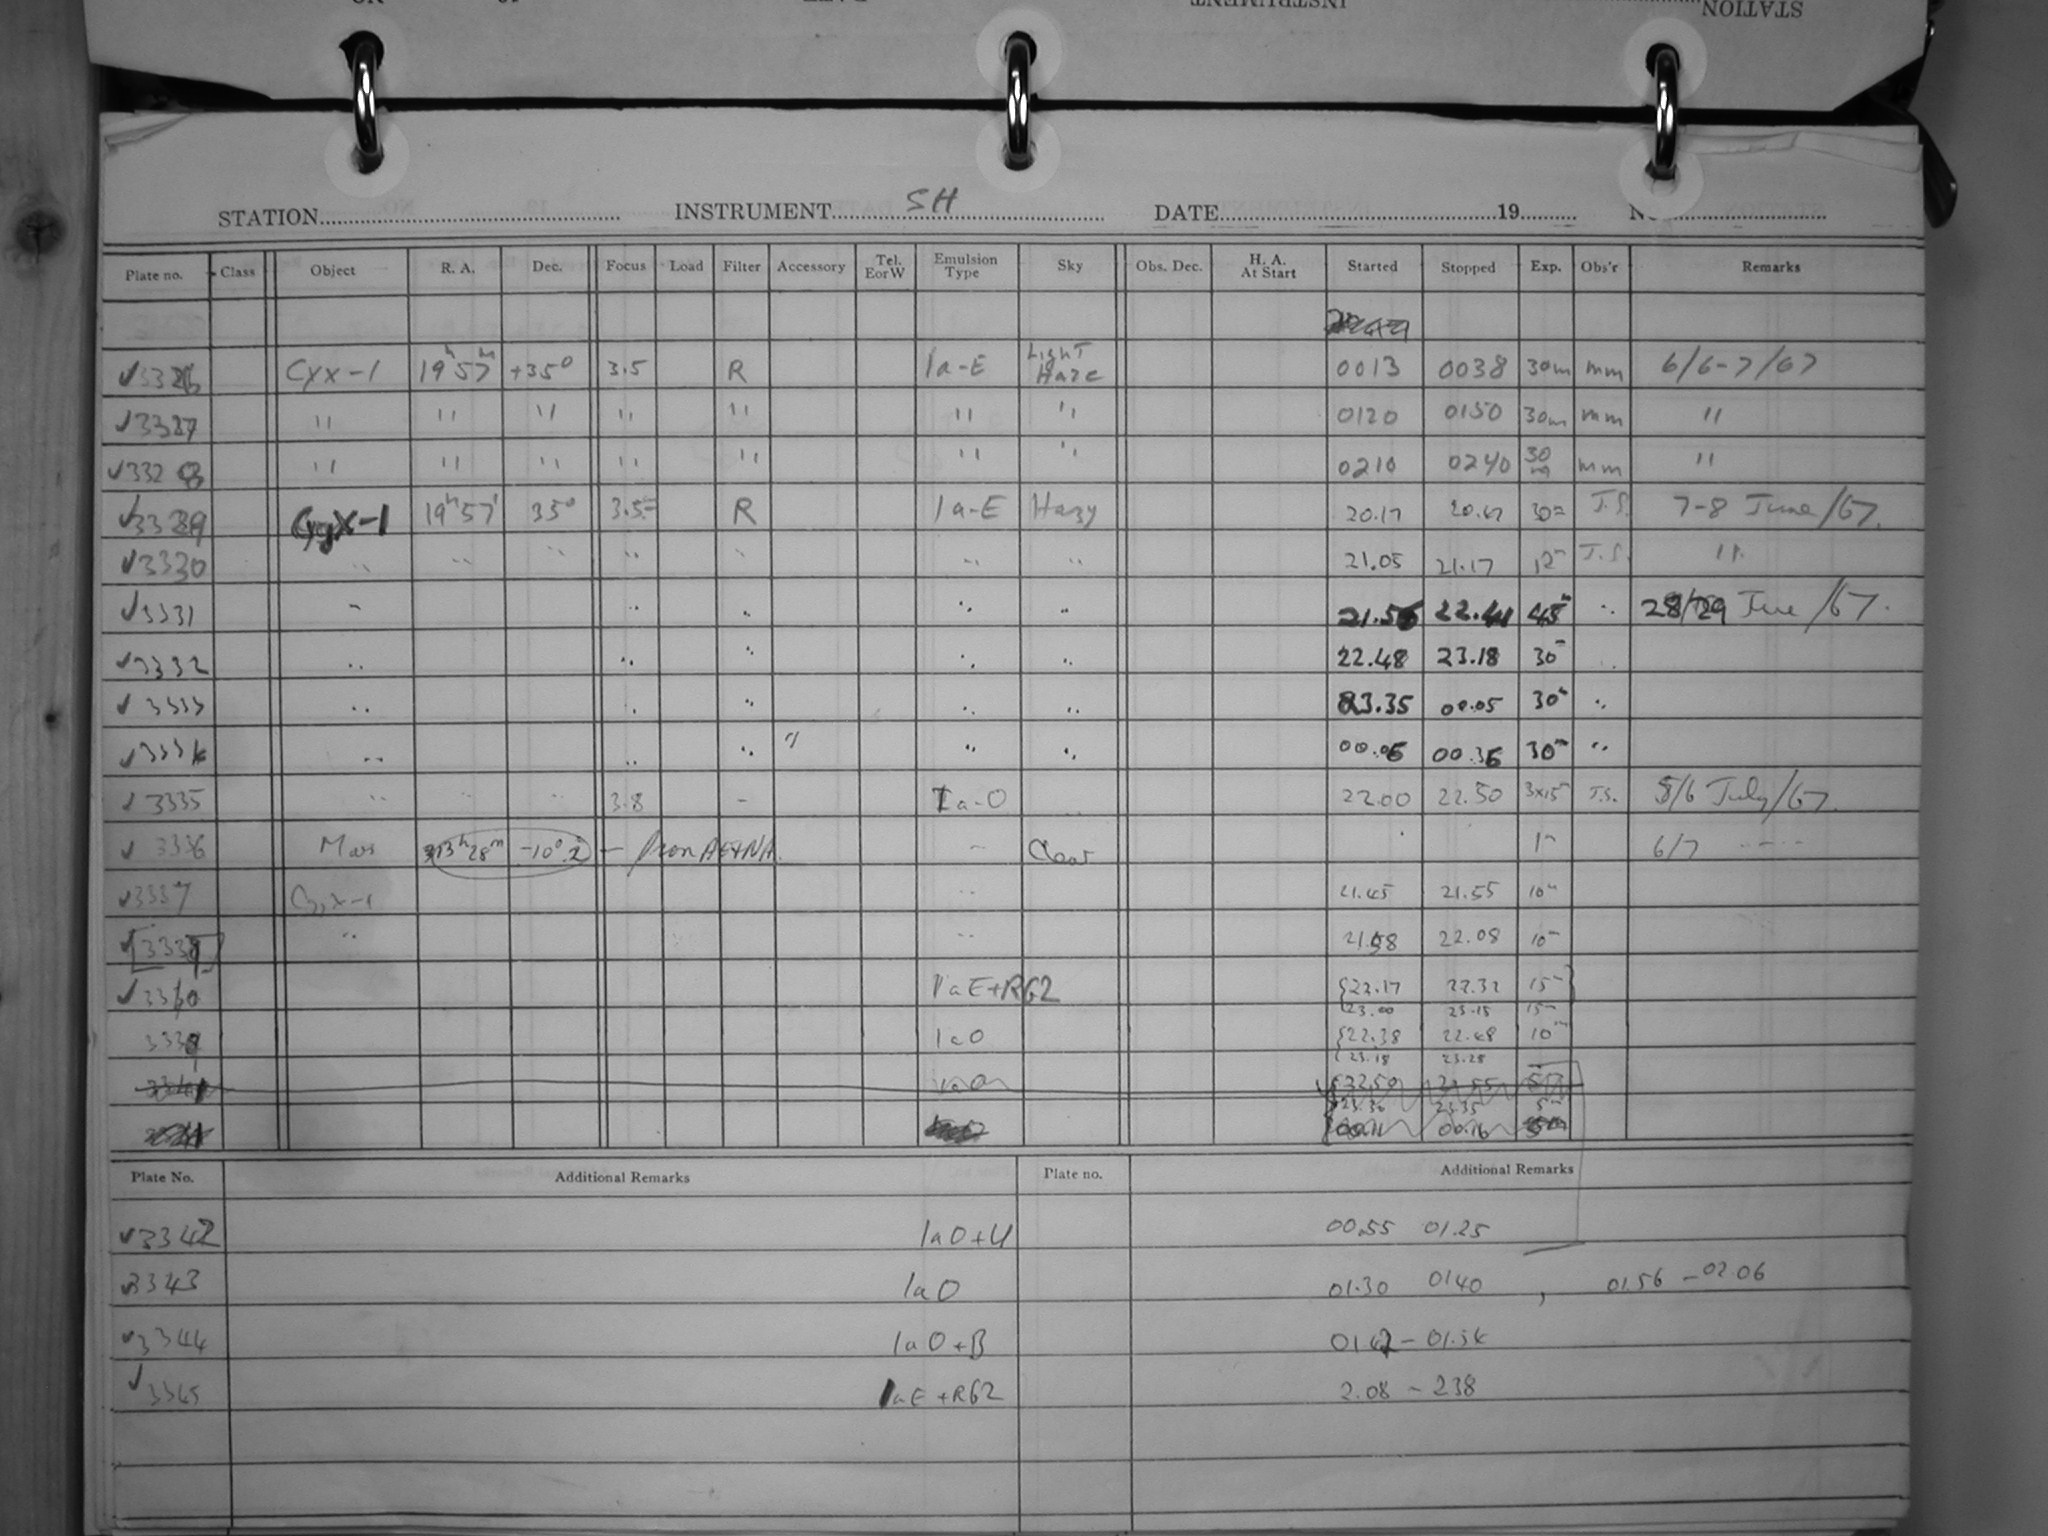 STATION INSTRUMENT
STATION INSTRUMENT SH DATE 19
Plate no. Class Object R. A. Dec. Focus Load Filter Accessory Tel. E or W Emulsion Type Sky Obs. Dec. H. A. At Start Started Stopped Exp. Obs'r Remarks
✓3326 Cyx-1 19h 57m +35° 3.5 R 1a-E Light Haze 0013 0038 30m mm 6/6-7/67
✓3327 " " " " " " " 0120 0150 30m mm "
✓3328 " " " " " " " 0210 0240 30m mm "
✓3329 CygX-1 19h 57' 35° 3.5 R 1a-E Hazy 20.17 20.47 30m J.S. 7-8 June/67.
✓3330 " " " " " " " 21.05 21.17 12m J.S. "
✓3331 " " " " " 21.56 22.41 45m " 28/29 June/67.
✓3332 " " " " " 22.48 23.18 30m "
✓3333 " " " " " 23.35 00.05 30m "
✓3334 " " " " " " 00.06 00.36 30m "
✓3335 " " " 3.8 - Ia-O 22.00 22.50 3x15m J.S. 5/6 July/67.
✓3336 Mars 13h 28m -10°.2 - from AE+NA. " Clear 1m 6/7 " "
✓3337 CygX-1 " 21.45 21.55 10m
✓3338 " " 21.58 22.08 10m
✓3340 1aE+RG2 22.17 22.32 15m
23.00 23.15 15m
3339 1aO 22.38 22.48 10m
23.18 23.28
3341 1aO 22.50 22.55 5m
23.30 23.35 5m
00.11 00.16
Plate No. Additional Remarks Plate no. Additional Remarks
✓3342 1aO+U 00.55 01.25
✓3343 1aO 01.30 0140 , 01.56 - 02.06
✓3344 1aO+B 0142 - 01.54
✓3345 1aE+RG2 2.08 - 238